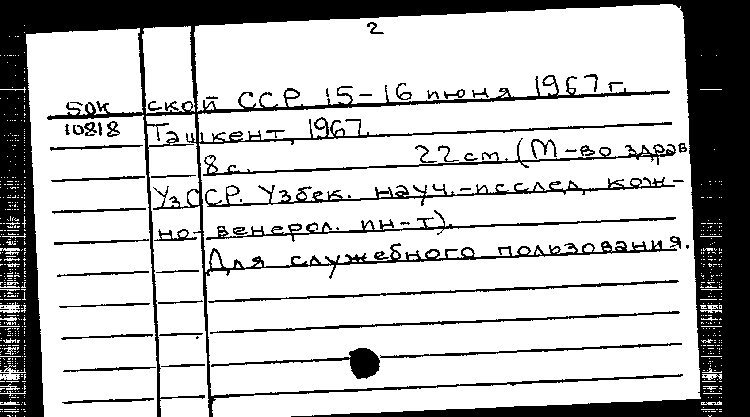 2
БОК ской ССР. 15-16 июня 1967 г.
10818 Ташкент, 1967.
8 с. 22 см. (М-во здрав
УзССР. Узбек. науч.-исслед. кож-
но-венерол. ин-т).
Для служебного пользования.